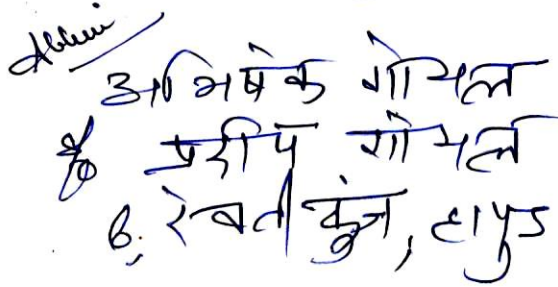 अभिषेक गोयल
S/o प्रदीप गोयल
6, रेवती कुंज, हापुड